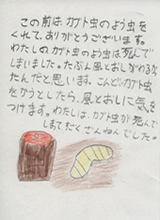 この前は、カブト虫のよう虫を
くれて、ありがとうございます。
わたしの、カブト虫のよう虫は死んで
しまいました。たぶん風とおしがわるか
たんだと思います。こんどカブト虫
をかうとしたら、風とおしに気を
つけます。わたしは、カブト虫が死んで
しまてざくざんねんでした。